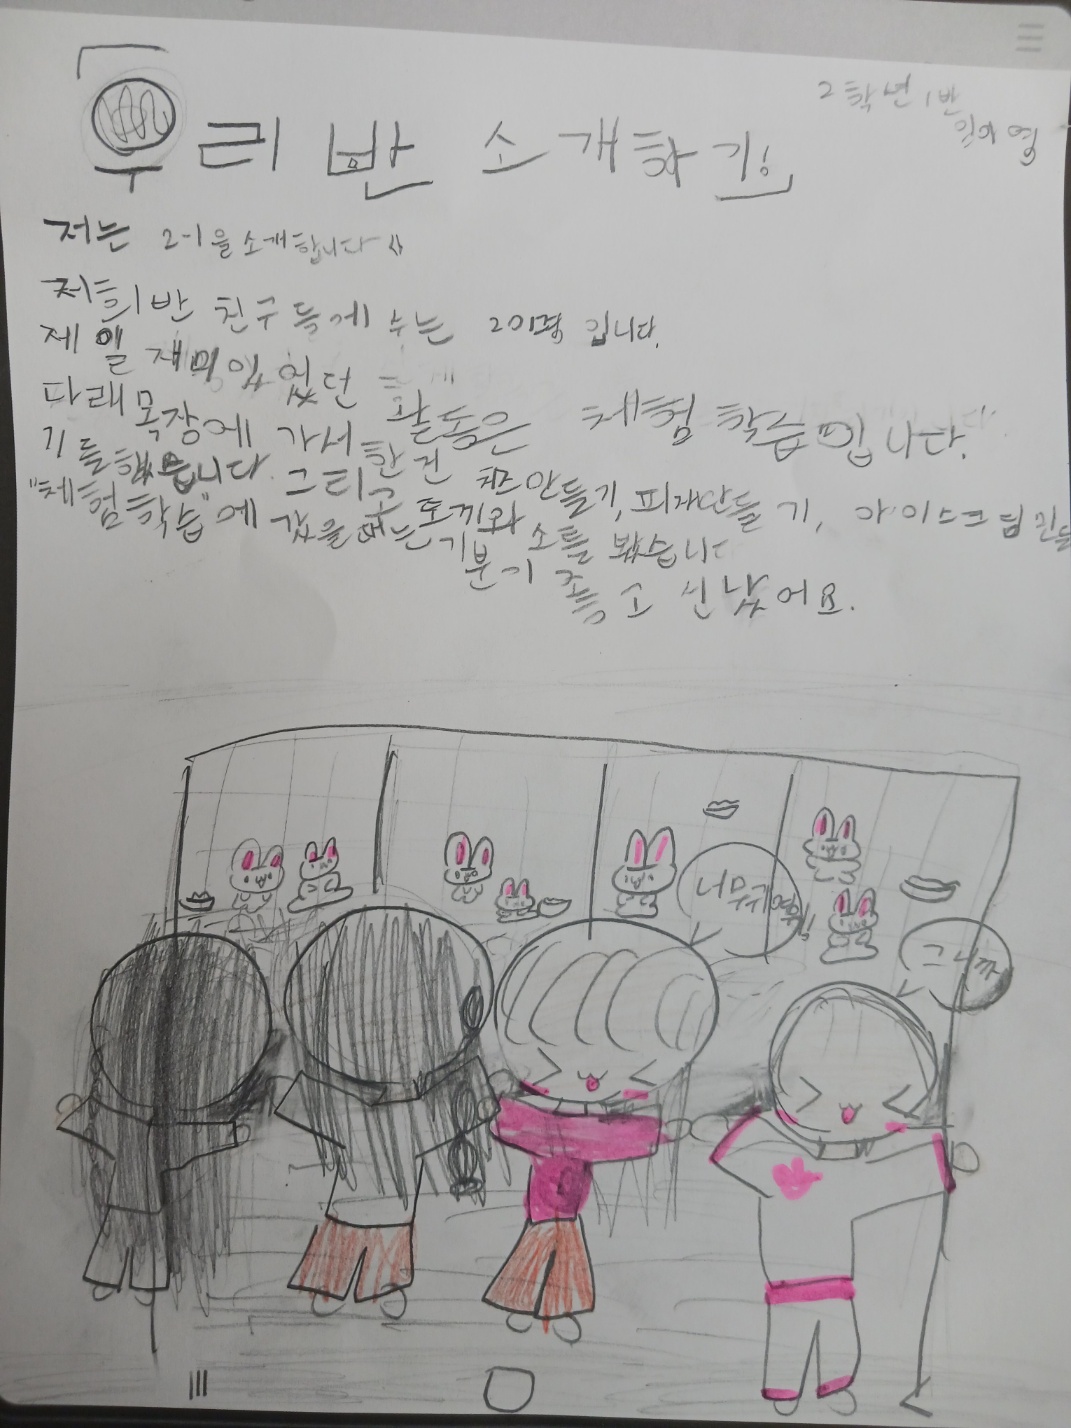 우리 반 소개하기!
2학년 1반
저는 2-1을 소개합니다
저희 반 친구들에 수는 20명 입니다.
제일 재미있었던 활동은 체험 학습입니다.
다래목장에 가서 한건 치즈만들기, 피자만들기, 아이스크림 만들
기를 했습니다. 그리고 토끼와 소를 봤습니다
"체험학습"에 갔을 때는 기분이 조금 신났어요.
너무귀여워!!
그니까